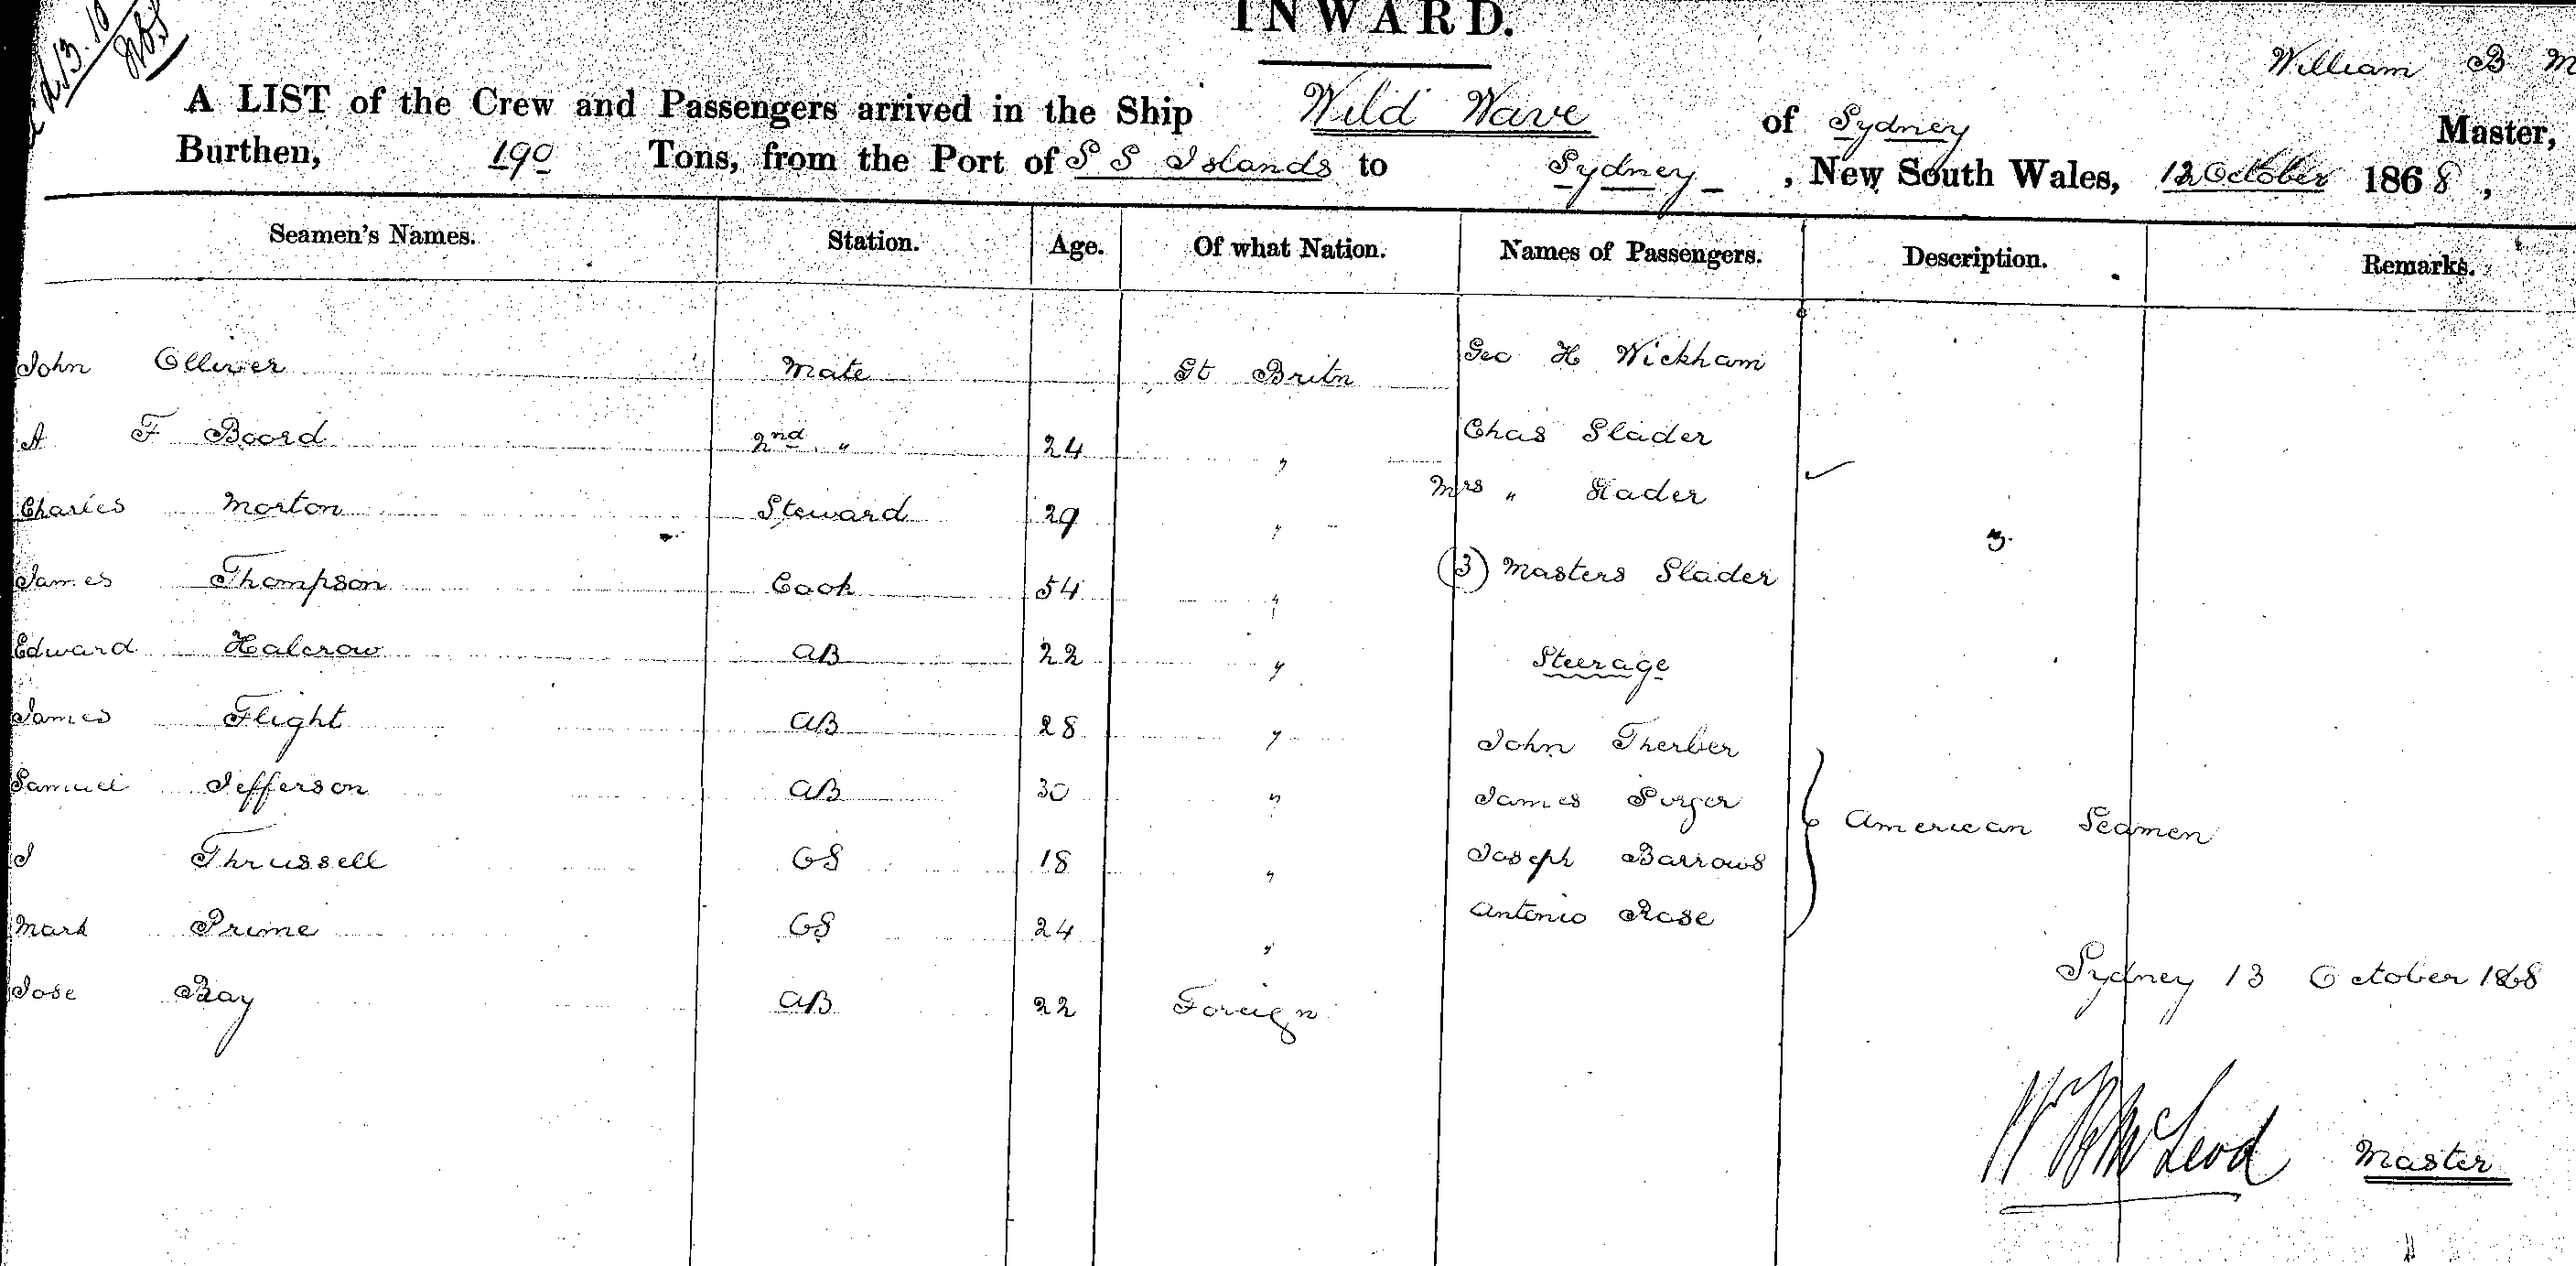 INWARD.
d 13.10
William B M
A LIST of the Crew and Passengers arrived in the Ship Wild Wave of Sydney Master,
Burthen, 190 Tons, from the Port of S S Islands to Sydney , New South Wales, 12 October 1868,
Seamen's Names. Station. Age. Of what Nation. Names of Passengers. Description. Remarks.
John Olliver Mate Gt Britn Geo H Wickham
A F Boord 2nd " 24 " Chas Slader
Mrs " Slader
Charles Morton Steward 29 "
James Thompson Cook 54 " (3) Masters Slader 3.
Edward Halcrow AB 22 " Steerage
James Flight AB 28 " John Therber
Samuel Jefferson AB 30 " James
American Seamen
J Thrussell OS 18 " Joseph Barrows
Mark Prime OS 24 " Antonio Rose
Jose Ray AB 22 Foreign
Sydney 13 October 1868
Wm B McLeod Master